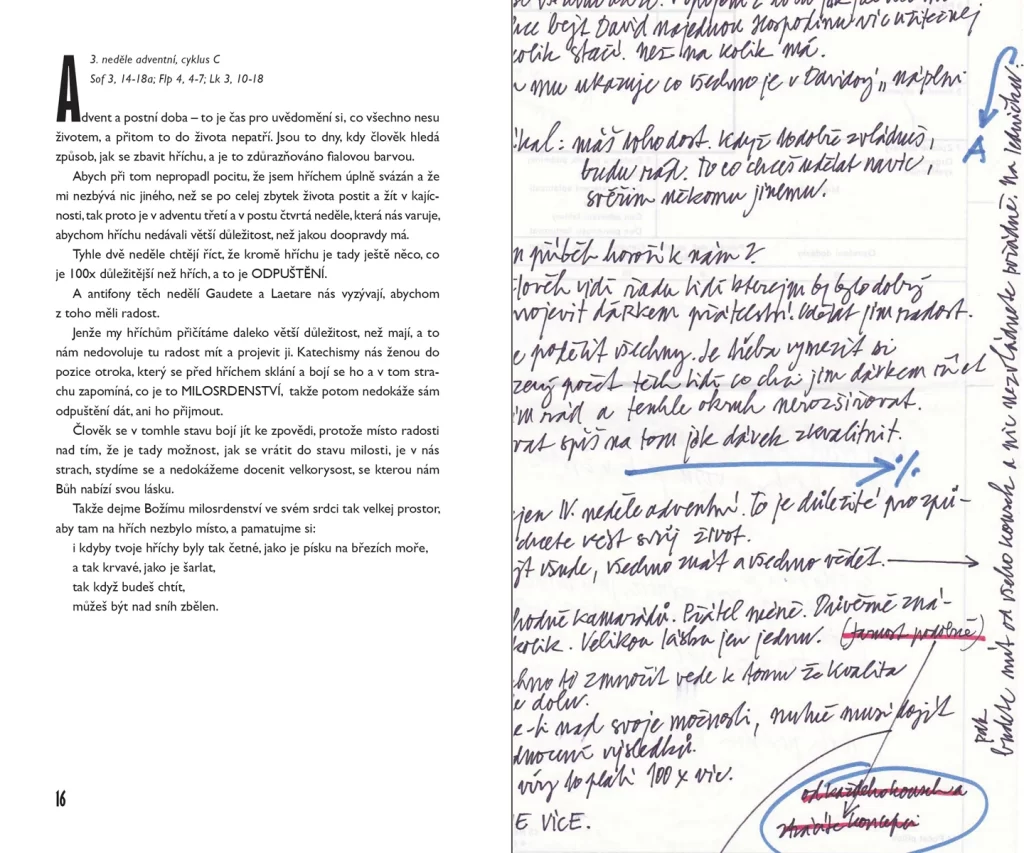 3. neděle adventní, cyklus C
Sof 3, 14-18a; Flp 4, 4-7; Lk 3, 10-18
Advent a postní doba – to je čas pro uvědomění si, co všechno nesu
životem, a přitom to do života nepatří. Jsou to dny, kdy člověk hledá
způsob, jak se zbavit hříchu, a je to zdůrazňováno fialovou barvou.
Abych při tom nepropadl pocitu, že jsem hříchem úplně svázán a že
mi nezbývá nic jiného, než se po celej zbytek života postit a žít v kajíc-
nosti, tak proto je v adventu třetí a v postu čtvrtá neděle, která nás varuje,
abychom hříchu nedávali větší důležitost, než jakou doopravdy má.
Tyhle dvě neděle chtějí říct, že kromě hříchu je tady ještě něco, co
je 100x důležitější než hřích, a to je ODPUŠTĚNÍ.
A antifony těch nedělí Gaudete a Laetare nás vyzývají, abychom
z toho měli radost.
Jenže my hříchům přičítáme daleko větší důležitost, než mají, a to
nám nedovoluje tu radost mít a projevit ji. Katechismy nás ženou do
pozice otroka, který se před hříchem sklání a bojí se ho a v tom stra-
chu zapomíná, co je to MILOSRDENSTVÍ, takže potom nedokáže sám
odpuštění dát, ani ho přijmout.
Člověk se v tomhle stavu bojí jít ke zpovědi, protože místo radosti
nad tím, že je tady možnost, jak se vrátit do stavu milosti, je v nás
strach, stydíme se a nedokážeme docenit velkorysost, se kterou nám
Bůh nabízí svou lásku.
Takže dejme Božímu milosrdenství ve svém srdci tak velkej prostor,
aby tam na hřích nezbylo místo, a pamatujme si:
i kdyby tvoje hříchy byly tak četné, jako je písku na březích moře,
a tak krvavé, jako je šarlat,
tak když budeš chtít,
můžeš být nad sníh zbělen.
16
bejt David najednou Hospodinu víc užitečnej
kolik stačí. než na kolik má.
mu ukazuje co všechno je v Davidovy „náplni
máš dohodost. Když todobře zvládneš,
budu rád. To co chceš udělat navíc,
svěřím někomu jinému.
příběh hovoří k nám?
člověk vidí řadu lidí kterejm by bylo dobrý
projevit dárkem přátelství. Udělat jim radost.
potěšit všechny. Je třeba vymezit si
počet těch lidí co chci jim dárkem říct
rád a tenhle okruh nerozšiřovat.
spíš na tom jak dárek zkvalitnit.
jen IV. neděle adventní. To je důležité pro způ-
chcete vést svůj život.
všude, všechno znát a všechno vědět.
hodně kamarádů. Přátel méně. Důvěrně zná-
kolik. Velikou lásku jen jednu.
to zmnožit vede k tomu že kvalita
dolu.
nad svoje možnosti, nutně musí dojít
výsledků.
víry to platí 100 x víc.
VÍCE.
A
pak
budete mít od všeho kousek a nic nezvládnete pořádně. na jedničku.
od každého kousek a
ztratíte koncepci